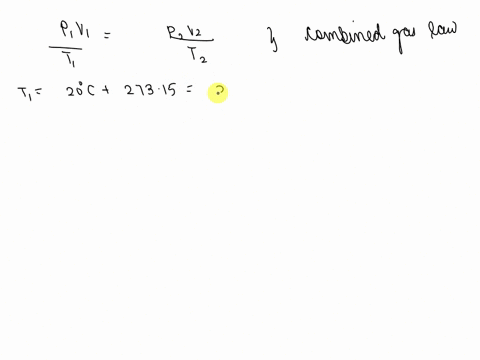 P₁V₁/T₁ = P₂V₂/T₂ } Combined gas law
T₁ = 20°C + 273.15 = 2